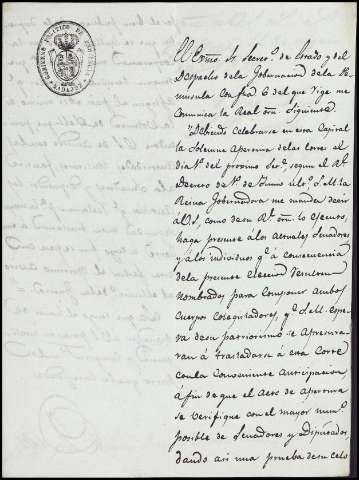 El Exmo. Sr. Secreto. de Estado y del
Despacho de la Gobernacion de la Pe-
ninsula con fha 6 del que rige me
comunica la Real orn. siguiente
"Debiendo celebrarse en esa Capital
la solemne Apertura de las Cortes el
dia 1o. del proximo Sere. segun el Rl.
Decreto de 1o. de Junio ulto. S.M. la
Reina Gobernadora me manda decir
á V.S. como de su Rl. orn. lo ejecuto,
haga presente á los actuales Senadores
y á los individuos qe. á consecuencia
de la presente eleccion resulten
nombrados para componer ambos
cuerpos colegisladores, qe. S.M. espe-
ra de su patriotismo se apresura-
ran á trasladarse á esta Corte
con la conveniente anticipacion,
á fin de que el acto de Apertura
se verifique con el mayor numo.
posible de Senadores y Diputados,
dando asi una prueba de su celo